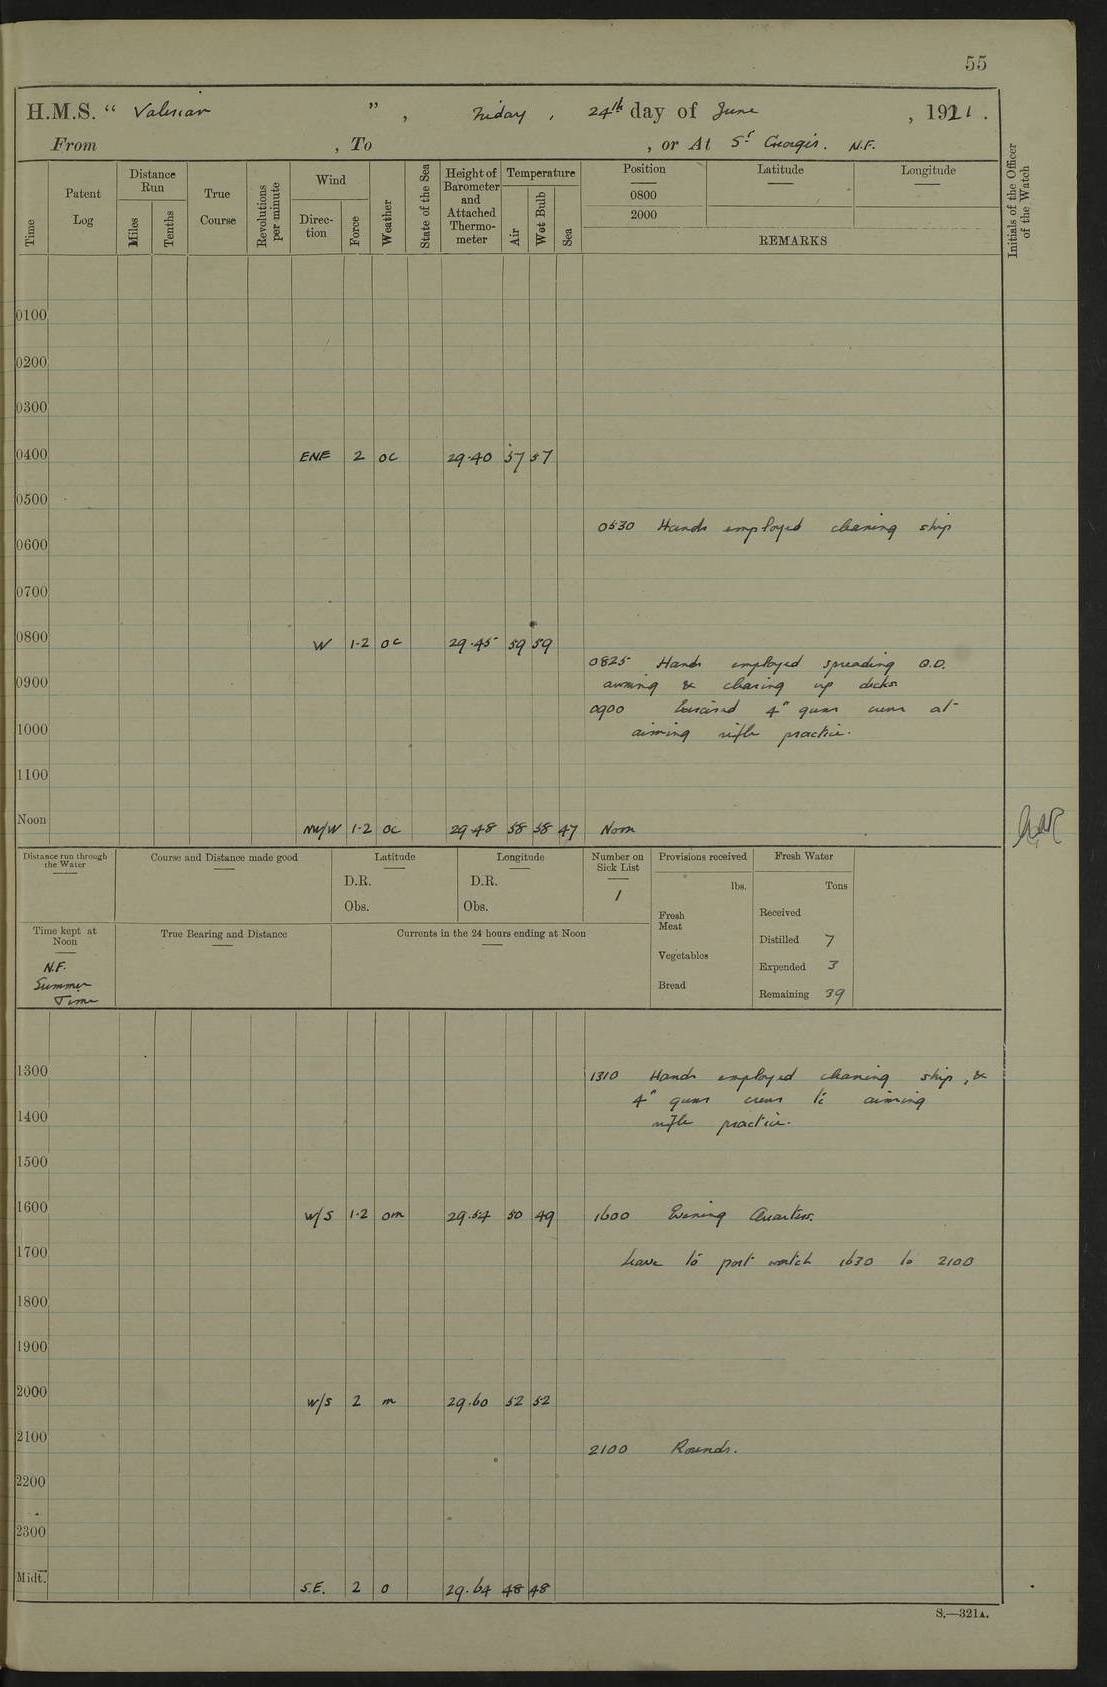 55
H.M.S. “ Valerian ” , Friday , 24th day of June , 1921 .
From , To , or At St Georges . N.F.
Time Patent Log Distance Run Miles Tenths True Course Revolutions per minute Wind Direc- tion Force Weather State of the Sea Height of Barometer and Attached Thermo- meter Temperature Air Wet Bulb Sea Position 0800 2000 Latitude Longitude
REMARKS
Initials of the Officer of the Watch
0100
0200
0300
0400 ENE 2 oc 29.40 57 57
0500
0530 Hands employed cleaning ship
0600
0700
0800 W 1-2 oc 29.45 59 59
0825 Hands employed spreading Q.D.
0900 awning & clearing up decks
0900 Exercised 4" guns crews at
1000 aiming rifle practice.
1100
Noon NW/W 1-2 oc 29.48 58 58 47 Noon
Distance run through the Water Course and Distance made good Latitude D.R. Obs. Longitude D.R. Obs. Number on Sick List 1 Provisions received lbs. Fresh Meat Vegetables Bread
Fresh Water Tons
Received
Distilled 7
Expended 3
Remaining 39
Time kept at Noon True Bearing and Distance Currents in the 24 hours ending at Noon
N.F.
Summer
Time
1300 1310 Hands employed cleaning ship , &
4" guns crews to aiming
1400 rifle practice.
1500
1600 W/S 1-2 om 29.54 50 49 1600 Evening Quarters.
1700 Leave to port watch 1630 to 2100
1800
1900
2000 W/S 2 m 29.60 52 52
2100 2100 Rounds.
2200
2300
Midt. S.E. 2 o 29.64 48 48
S.—321A.